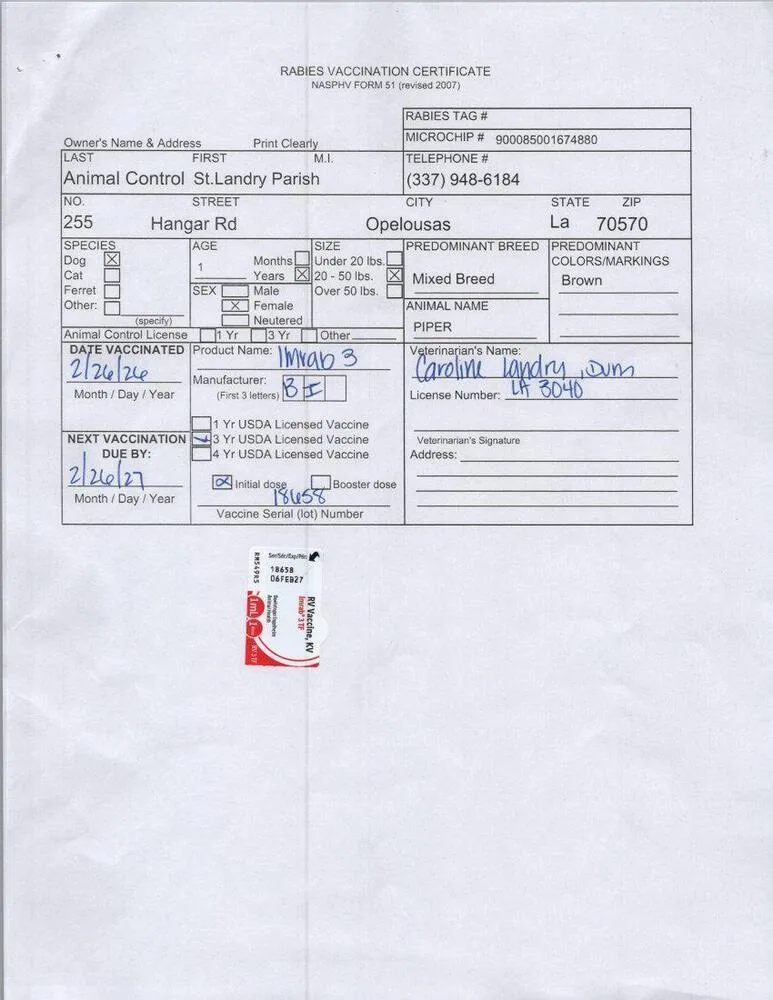 RABIES VACCINATION CERTIFICATE
NASPHV FORM 51 (revised 2007)
RABIES TAG #
Owner's Name & Address Print Clearly
MICROCHIP # 900085001674880
LAST FIRST M.I. TELEPHONE #
Animal Control St.Landry Parish (337) 948-6184
NO. STREET CITY STATE ZIP
255 Hangar Rd Opelousas La 70570
SPECIES AGE SIZE PREDOMINANT BREED PREDOMINANT
Dog X Months Under 20 lbs. COLORS/MARKINGS
Cat 1 Years X 20 - 50 lbs. X Mixed Breed Brown
Ferret SEX Male Over 50 lbs.
Other: X Female ANIMAL NAME
(specify) Neutered PIPER
Animal Control License 1 Yr 3 Yr Other
DATE VACCINATED Product Name: Imrab 3 Veterinarian's Name:
2/26/26 Caroline Landry, DVM
Manufacturer: B I
Month / Day / Year (First 3 letters) License Number: LA 3040
1 Yr USDA Licensed Vaccine
NEXT VACCINATION 3 Yr USDA Licensed Vaccine Veterinarian's Signature
DUE BY: 4 Yr USDA Licensed Vaccine Address:
2/26/27
X Initial dose Booster dose
Month / Day / Year 18658
Vaccine Serial (lot) Number
Ser/Sér/Exp/Pér:
18658
06FEB27
RM549R5
RV Vaccine, KV
Imrab® 3 TF
Boehringer Ingelheim
Animal Health
1 mL
RV 3 TF